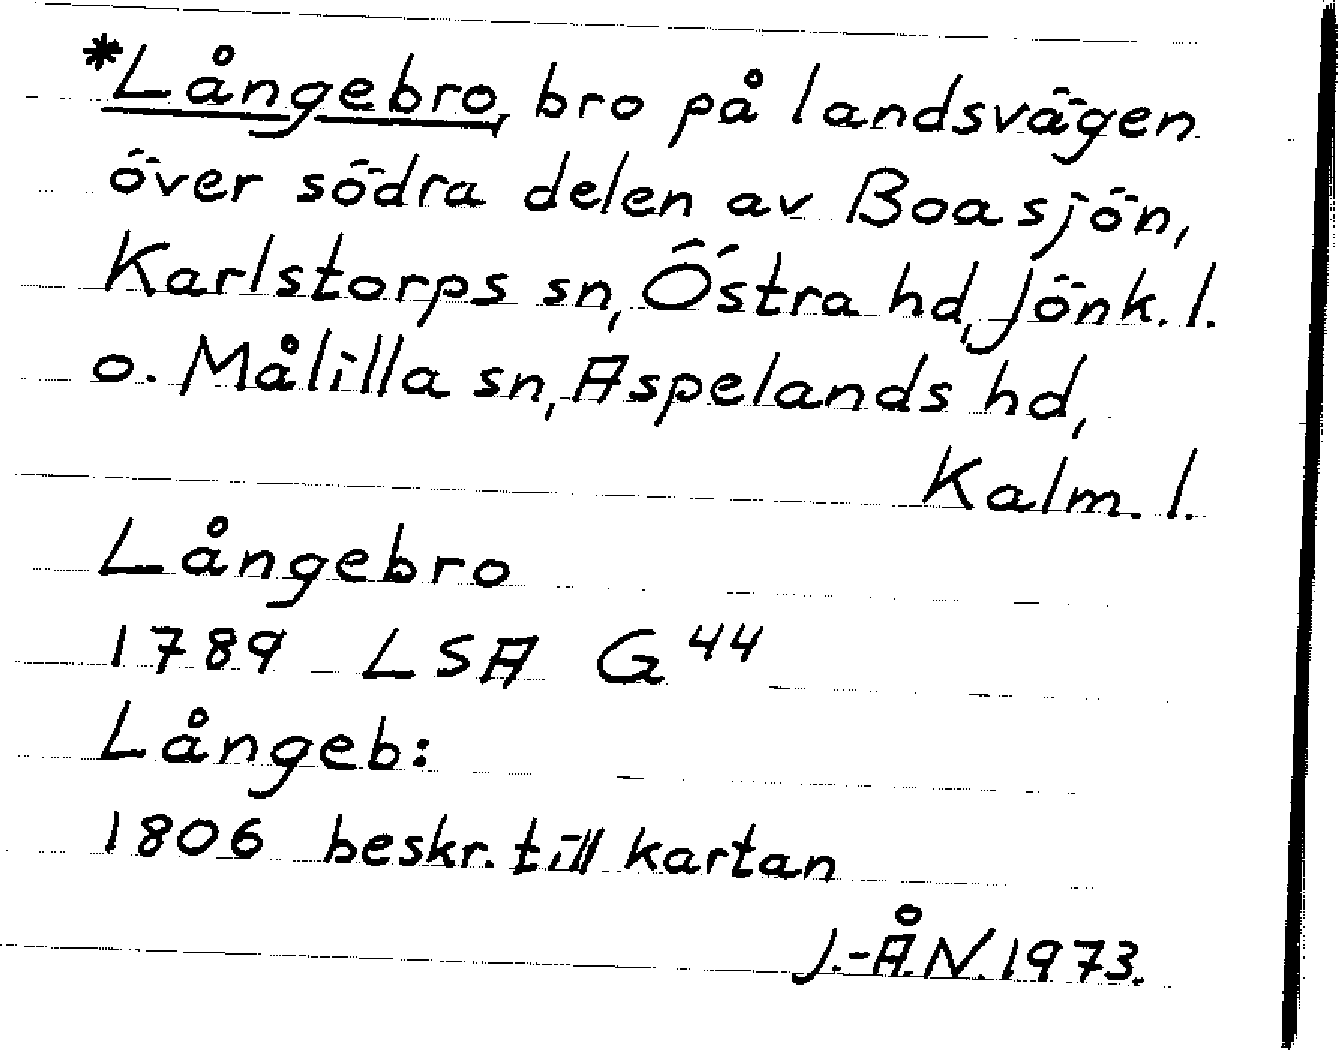 *Långebro, bro på landsvägen
över södra delen av Boasjön,
Karlstorps sn, Östra hd, Jönk. l.
o. Målilla sn, Aspelands hd,
Kalm. l.
Långebro
1789 LSA G 44
Långeb:
1806 beskr. till kartan
J.-Å.N. 1973.